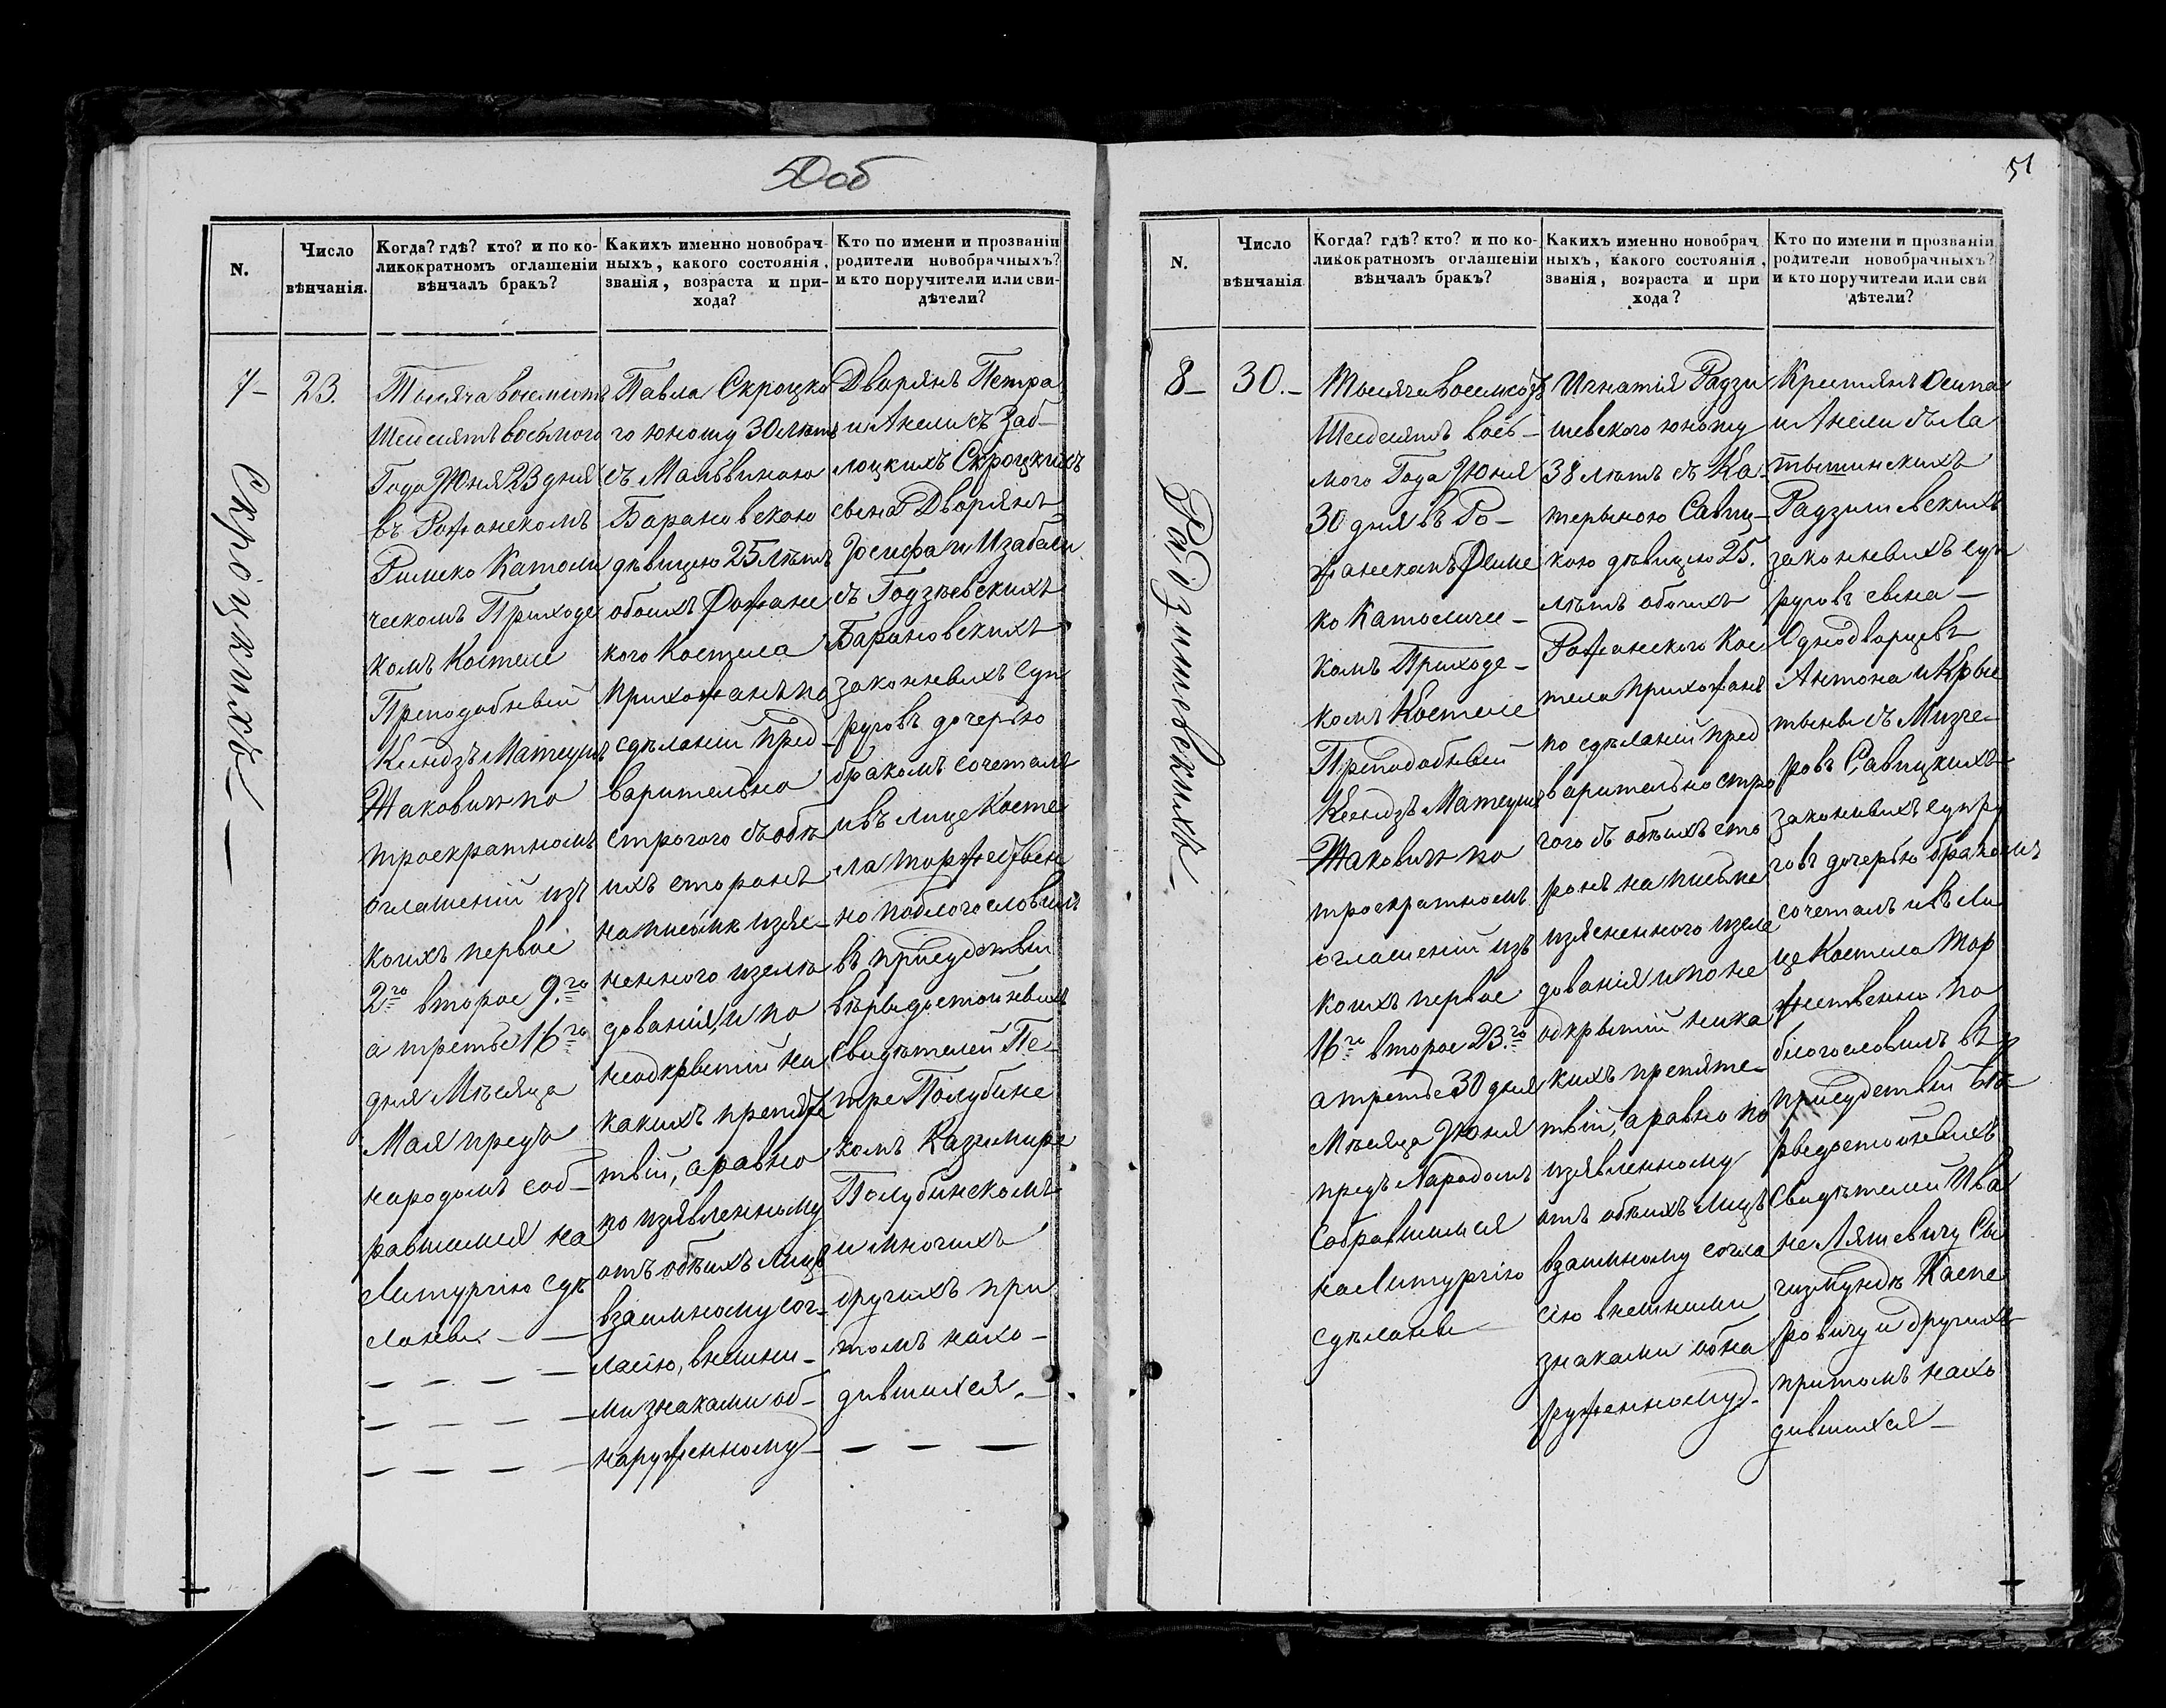 50об
N.
Число
вѣнчанія.
Когда? гдѣ? кто? и по ко-
ликократномъ оглашеніи
вѣнчалъ бракъ?
Какихъ именно новобрач-
ныхъ, какого состоянія,
званія, возраста и при-
хода?
Кто по имени и прозваніи
родители новобрачныхъ?
и кто поручители или сви-
дѣтели?
7-
Скроцкихъ
23.
Тысяча восмсотъ
Шейсятъ восьмого
Года Июня 23 дня
въ Рожанскомъ
Римско Католи
ческомъ Приходс
комъ Костеле
Преподобный
Ксендзъ Матеушъ
Жаковичъ по
троекратномъ
оглашеній изъ
коихъ первое
2го второе 9.го
а третье 16го
дня Мѣсяца
Мая предъ
народомъ соб-
равшимся на
Литургію сдѣ
ланы. -
Павла Скроцко
го юношу 30 лѣтъ
съ Мальвиною
Барановскою
дѣвицею 25 лѣтъ
обоихъ Рожанс
кого Костела
прихожанъ по
сдѣланій пред-
варительно
строгого съ обѣ
ихъ сторонъ
на письмѣ изяс-
ненного изслѣ
дованія, и по
неодкрытій ни
какихъ препятс
твій, а равно
по изявленному
отъ обѣихъ лицъ
взаимному сог-
ласію, внешни-
ми знаками об-
наруженному-
Дворянъ Петра
и Анели съ Заб-
лоцкихъ Скроцкихъ
сына Дворянъ
Іосифа и Изабели
съ Годзѣевскихъ
Барановскихъ
законныхъ суп
руговъ дочерью
бракомъ сочеталъ
и въ лице Косте
ла торжествен
но поблогословилъ
въ присудствіи
вѣрыдостойныхъ
Свидѣтелей Пе-
тре Полубинс
комъ Казимире
Полубинскомъ
и многихъ
другихъ при
томъ нахо-
дившихся.-
51
N.
Число
вѣнчанія
Когда? гдѣ? кто? и по ко-
ликократномъ оглашеніи
вѣнчалъ бракъ?
Какихъ именно новобрач
ныхъ, какого состоянія,
званія, возраста и при
хода?
Кто по имени и прозваніи
родители новобрачныхъ?
и кто поручители или сви
дѣтели?
8-
Радзишевскихъ-
30.-
Тысяча восемсотъ
Шесдесятъ вось-
мого Года Июня
30 дня въ Ро-
жанскомъ Римс
ко Католичес-
комъ Приходс-
комъ Костеле
Преподобный
Ксендзъ Матеушъ
Жаковичъ по
троекратномъ
оглашеній изъ
коихъ первое
16го второе 23.го
а третье 30 дня
Мѣсяца Июня
предъ Народомъ
собравшимся
на Литургію
сдѣланы
Игнатія Радзи
шевского юношу
38 лѣтъ съ Ка-
териною Савиц-
кою дѣвицею 25.
лѣтъ обоихъ
Рожанского Кос
тела прихожанъ
по сдѣланій пред
варительно стро
гого съ обѣихъ сто
ронъ на письме
изясненного изслѣ
дованія и по не
одкрытій ника
кихъ препятс-
твій, а равно по
изявленному
отъ обѣихъ лицъ
взаимному согла
сію внешними
знаками обна
руженному.
Крстянъ Осипа
и Анели съ Ла
тышинскихъ
Радзишевскихъ
законныхъ суп
руговъ сына-
Однодворцевъ
Антона и Крыс
тыны съ Мизге-
ровъ Савицкихъ
законныхъ супру
говъ дочерью бракомъ
сочеталъ и въ ли
це Костела Тор
жественно по
благословилъ въ
присудствій вѣ
рыдостойныхъ
Свидѣтелей Ива
не Ляшевичу Сы
гизмундѣ Каспе
ровичу и другихъ
притомъ нахо
дившихся-